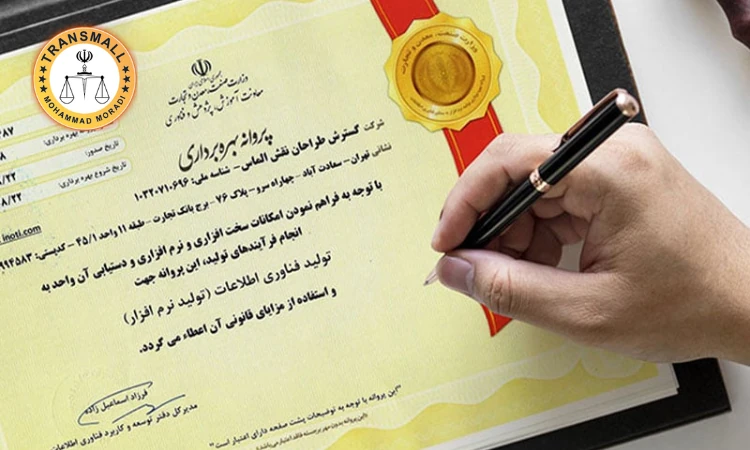 TRANSMALL
MOHAMMAD MORADI
جمهوری اسلامی ایران
وزارت صنعت، معدن و تجارت
معاونت آموزش، پژوهش و فناوری
پروانه بهره برداری
وزارت صنعت، معدن و تجارت
تاریخ صدور:
تاریخ شروع بهره برداری:
شرکت گسترش طراحان نقش الماس - شناسه ملی: ۱۰۳۲۰۷۱۰۶۹۶
نشانی تهران - سعادت آباد - چهاراه سرو - پلاک ۷۶ - برج بانک تجارت - طبقه ۱۱ واحد ۴۵/۱ - کدپستی:
inoti.com
با توجه به فراهم نمودن امکانات سخت افزاری و نرم افزاری و دستیابی آن واحد به
انجام فرآیندهای تولید، این پروانه جهت
تولید فناوری اطلاعات (تولید نرم افزار)
و استفاده از مزایای قانونی آن اعطاء می گردد.
فرزاد اسماعیل زاده
مدیرکل دفتر توسعه و کاربرد فناوری اطلاعات
"این پروانه با توجه به توضیحات پشت صفحه دارای اعتبار است"
"این پروانه بدون مهر برجسته فاقد اعتبار می باشد"